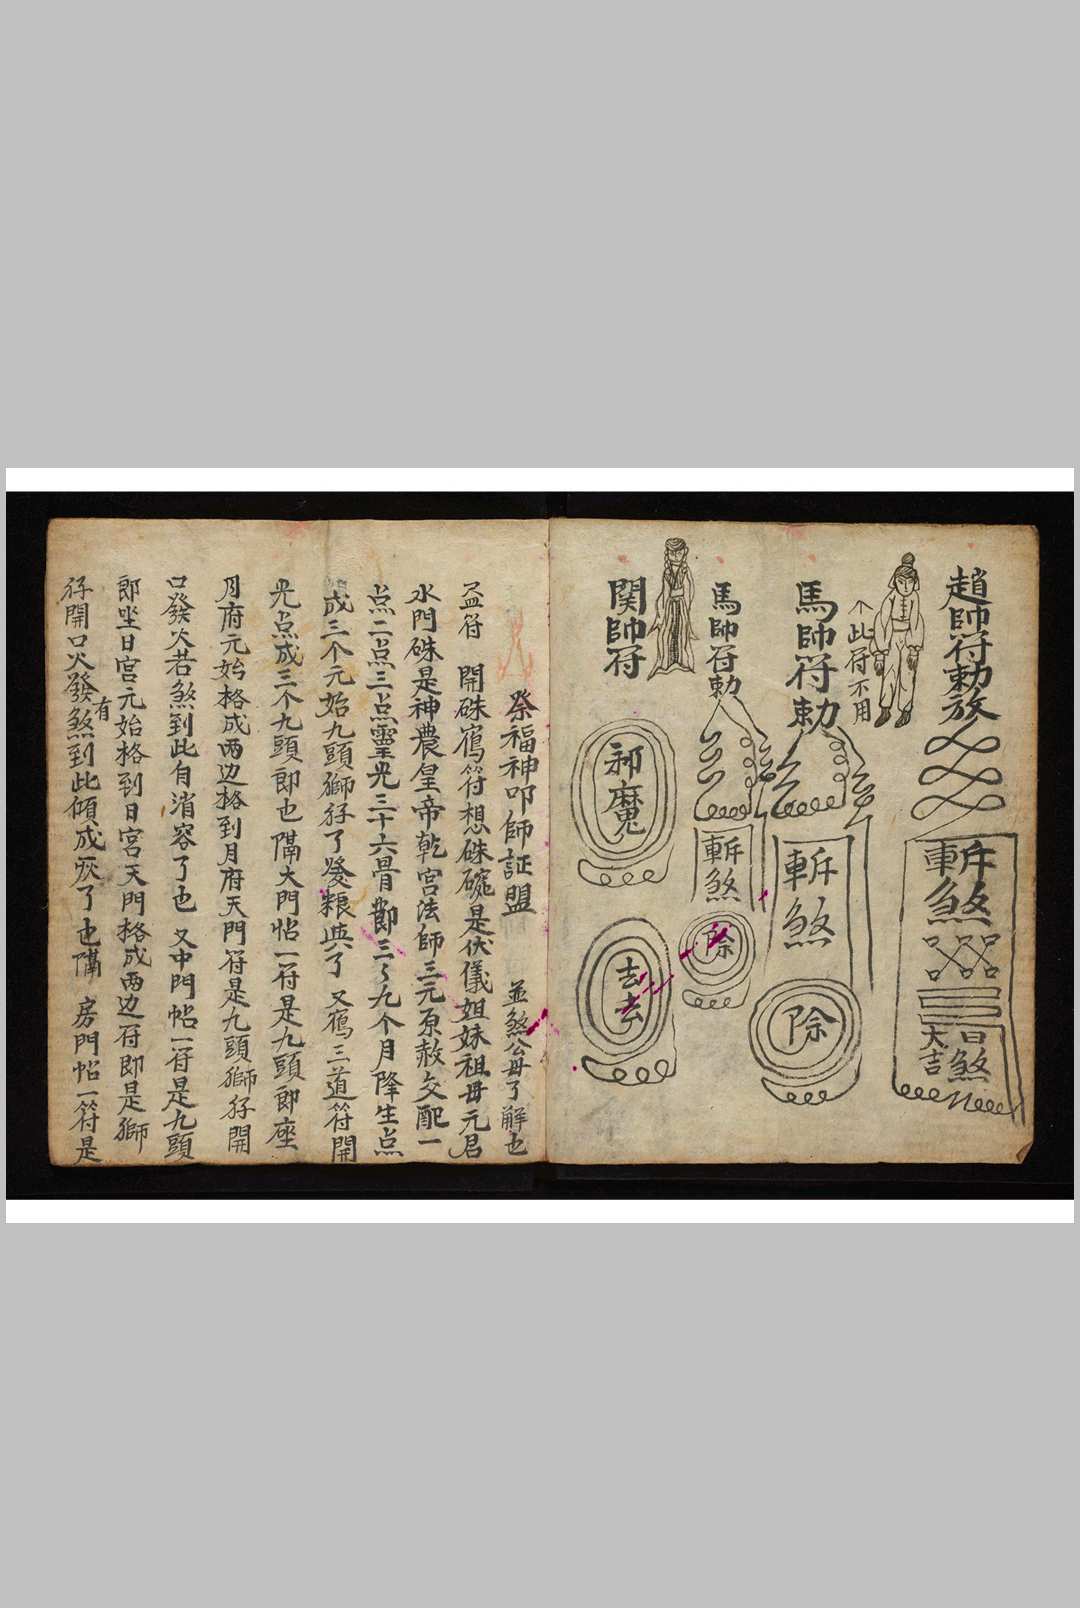 趙帥符勅放
斬煞
大吉
日煞
此符不用
馬帥符勅
斬煞
除
馬帥符勅
斬煞
除
関帥符
邪魔
去去
祭福神叩師証盟 並煞公母了解也
盆符 開硃寫符想硃碗是伏儀姐妹祖母元君
水門硃是神農皇帝乾宮法師三元原赦交配一
点二点三点靈光三十六骨節三々九个月降生点
成三个元始九頭獅仔了發粮典了 又寫三道符開
光点成三个九頭郎也隔大門帖一符是九頭郎座
月府元始格成两边格到月府天門符是九頭獅仔開
口發火若煞到此自消容了也 又中門帖一符是九頭
郎坐日宮元始格到日宮天門格成两边符即是獅
仔開口火發有煞到此傾成灰了也隔 房門帖一符是